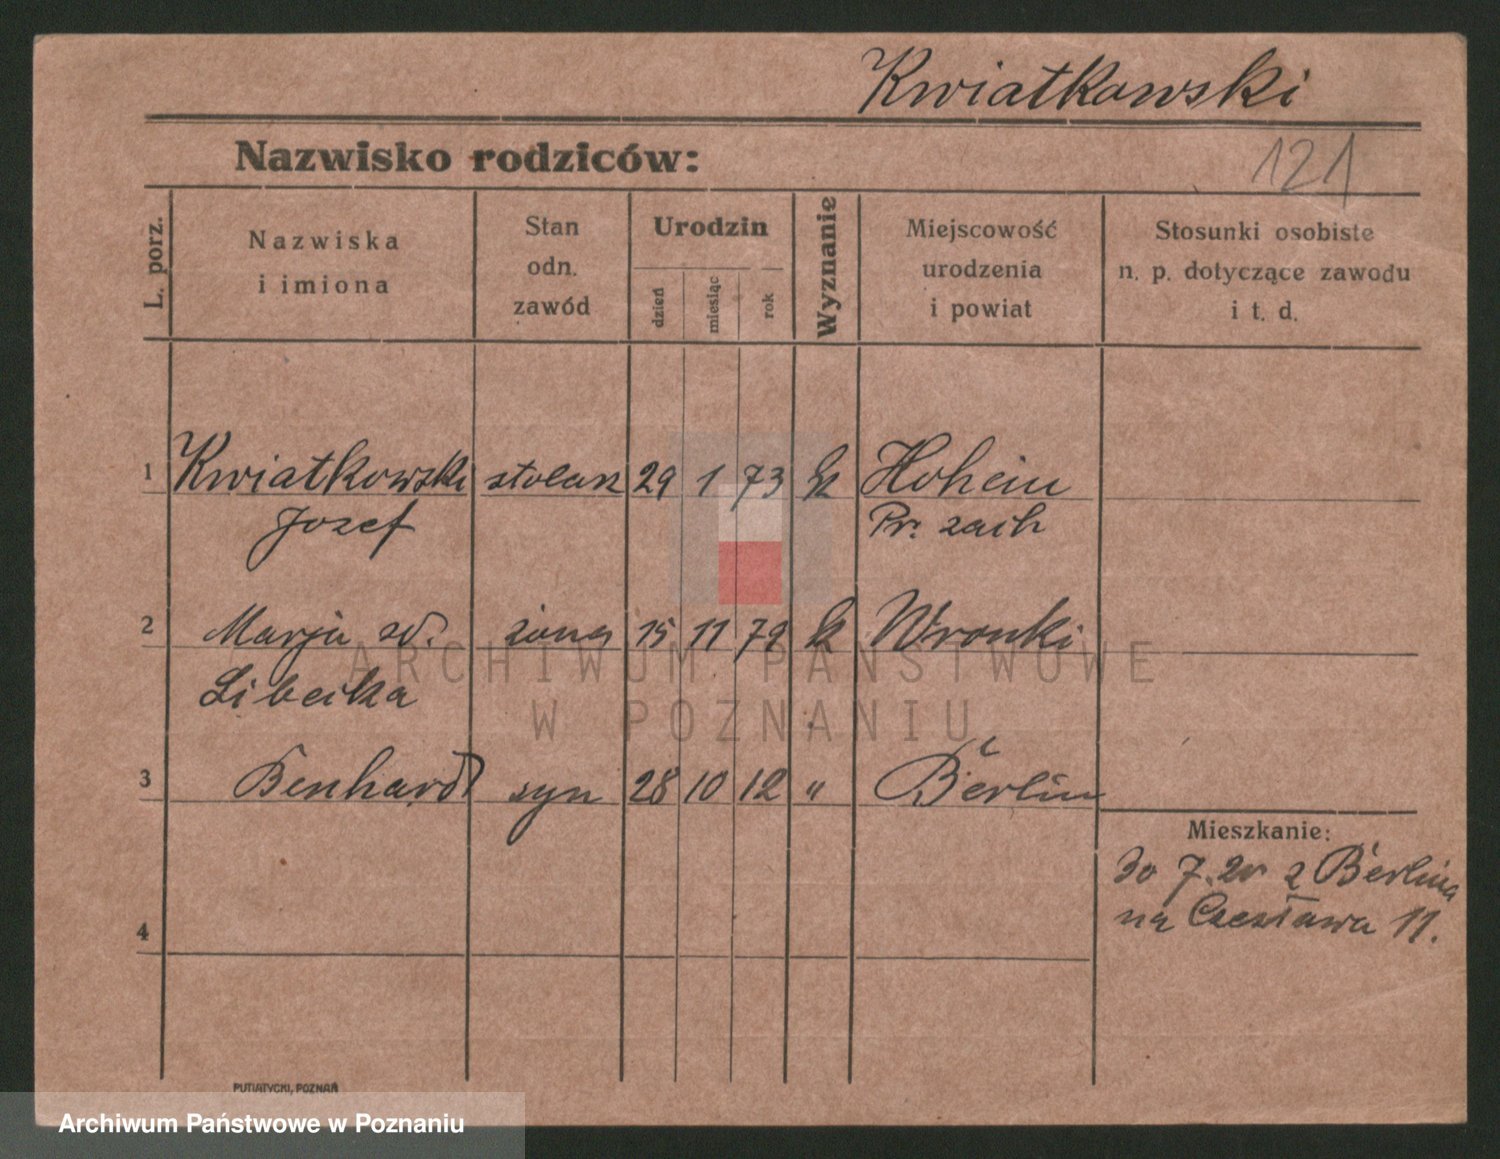 Kwiatkowski
121
Nazwisko rodziców:
L. porz.
Nazwiska
i imiona
Stan
odn.
zawód
Urodzin
dzień
miesiąc
rok
Wyznanie
Miejscowość
urodzenia
i powiat
Stosunki osobiste
n. p. dotyczące zawodu
i t. d.
1 Kwiatkowski stolarz 29 1 73 k Hohein
Jozef Pr. zach
2 Marja żona 15 11 79 k Wronki
Libecka
3 Benhard syn 28 10 12 " Berlin
Mieszkanie:
30 7. 20 z Berlina
na Czesława 11.
4
PUTIATYCKI, POZNAŃ
ARCHIWUM PAŃSTWOWE
W POZNANIU
Archiwum Państwowe w Poznaniu